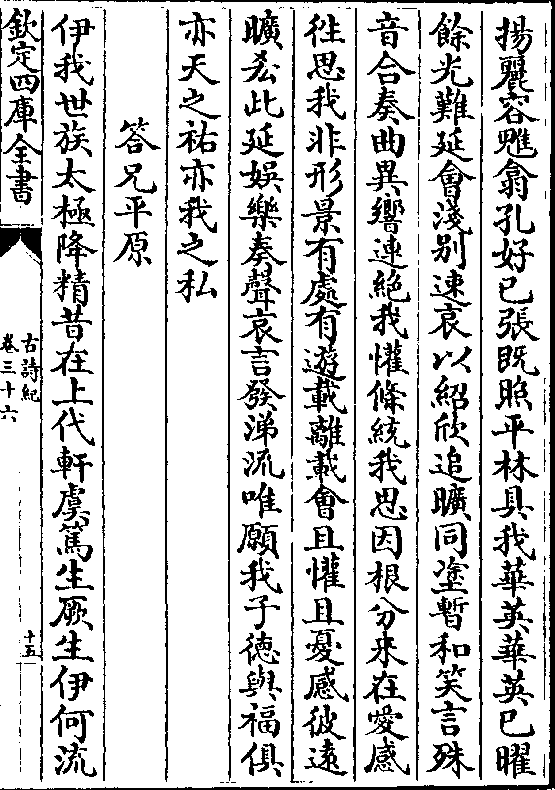 揚麗容雖翕孔好已張既照平林具我華英華英已曜
餘光難延會淺別速哀以紹欣追曠同塗暫和笑言殊
音合奏曲異響連絶我懽條統我思因根分來在愛感
往思我非形景有處有遊載離載會且懽且憂感彼遠
曠忝此延娛樂奏聲哀言發涕流唯願我子德與福俱
亦天之祐亦我之私
答兄平原
伊我世族太極降精昔在上代軒虞篤生厥生伊何流
欽定四庫全書
古詩紀
卷三十六
十五